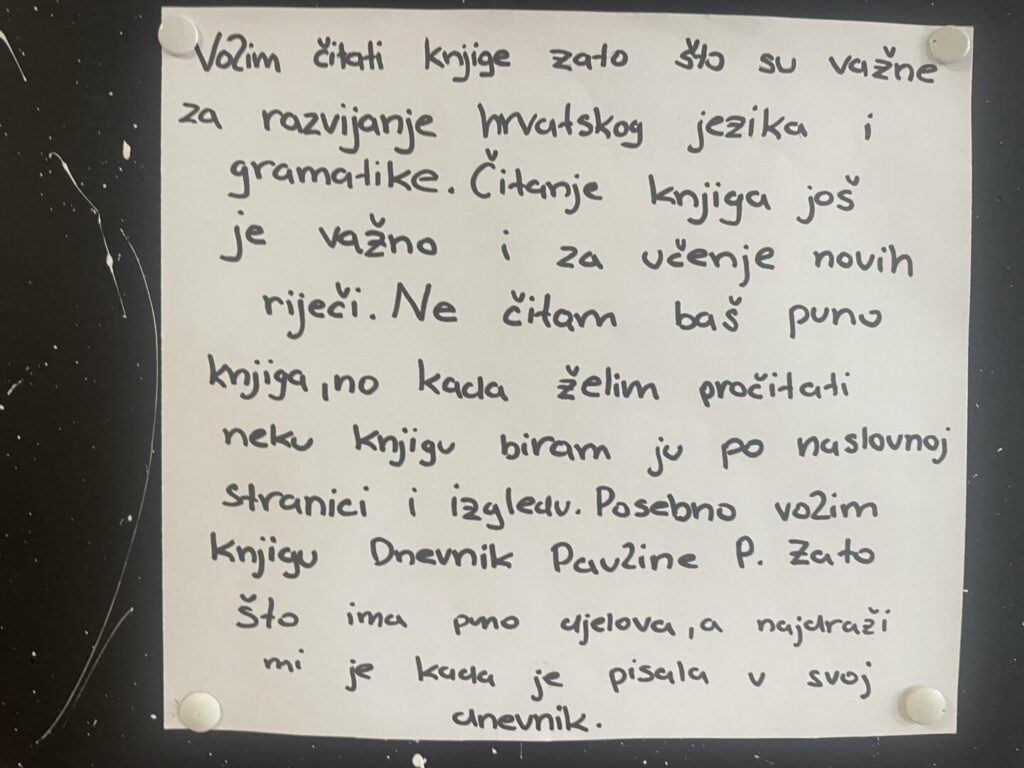 Volim čitati knjige zato što su važne
za razvijanje hrvatskog jezika i
gramatike. Čitanje knjiga još
je važno i za učenje novih
riječi. Ne čitam baš puno
knjiga, no kada želim pročitati
neku knjigu biram ju po naslovnoj
stranici i izgledu. Posebno volim
knjigu Dnevnik Pauline P. zato
što ima puno djelova, a najdraži
mi je kada je pisala u svoj
dnevnik.